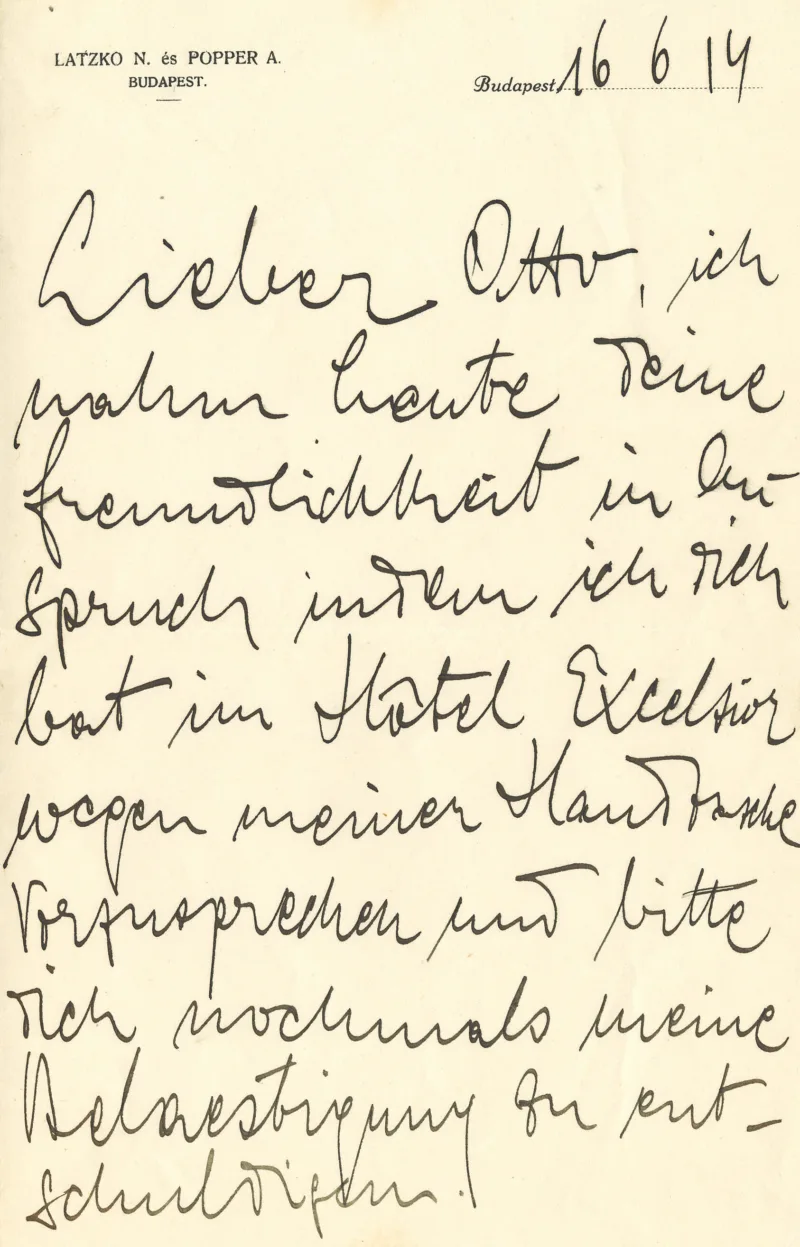 LATZKO N. és POPPER A.
BUDAPEST.
Budapest, 16 6 14
Lieber Otto, ich
nahm heute deine
freundlichkeit in An-
spruch indem ich dich
bat im Hotel Excelsior
wegen meiner Handtasche
vorzusprechen und bitte
dich nochmals meine
Belaestigung zu ent-
schuldigen.